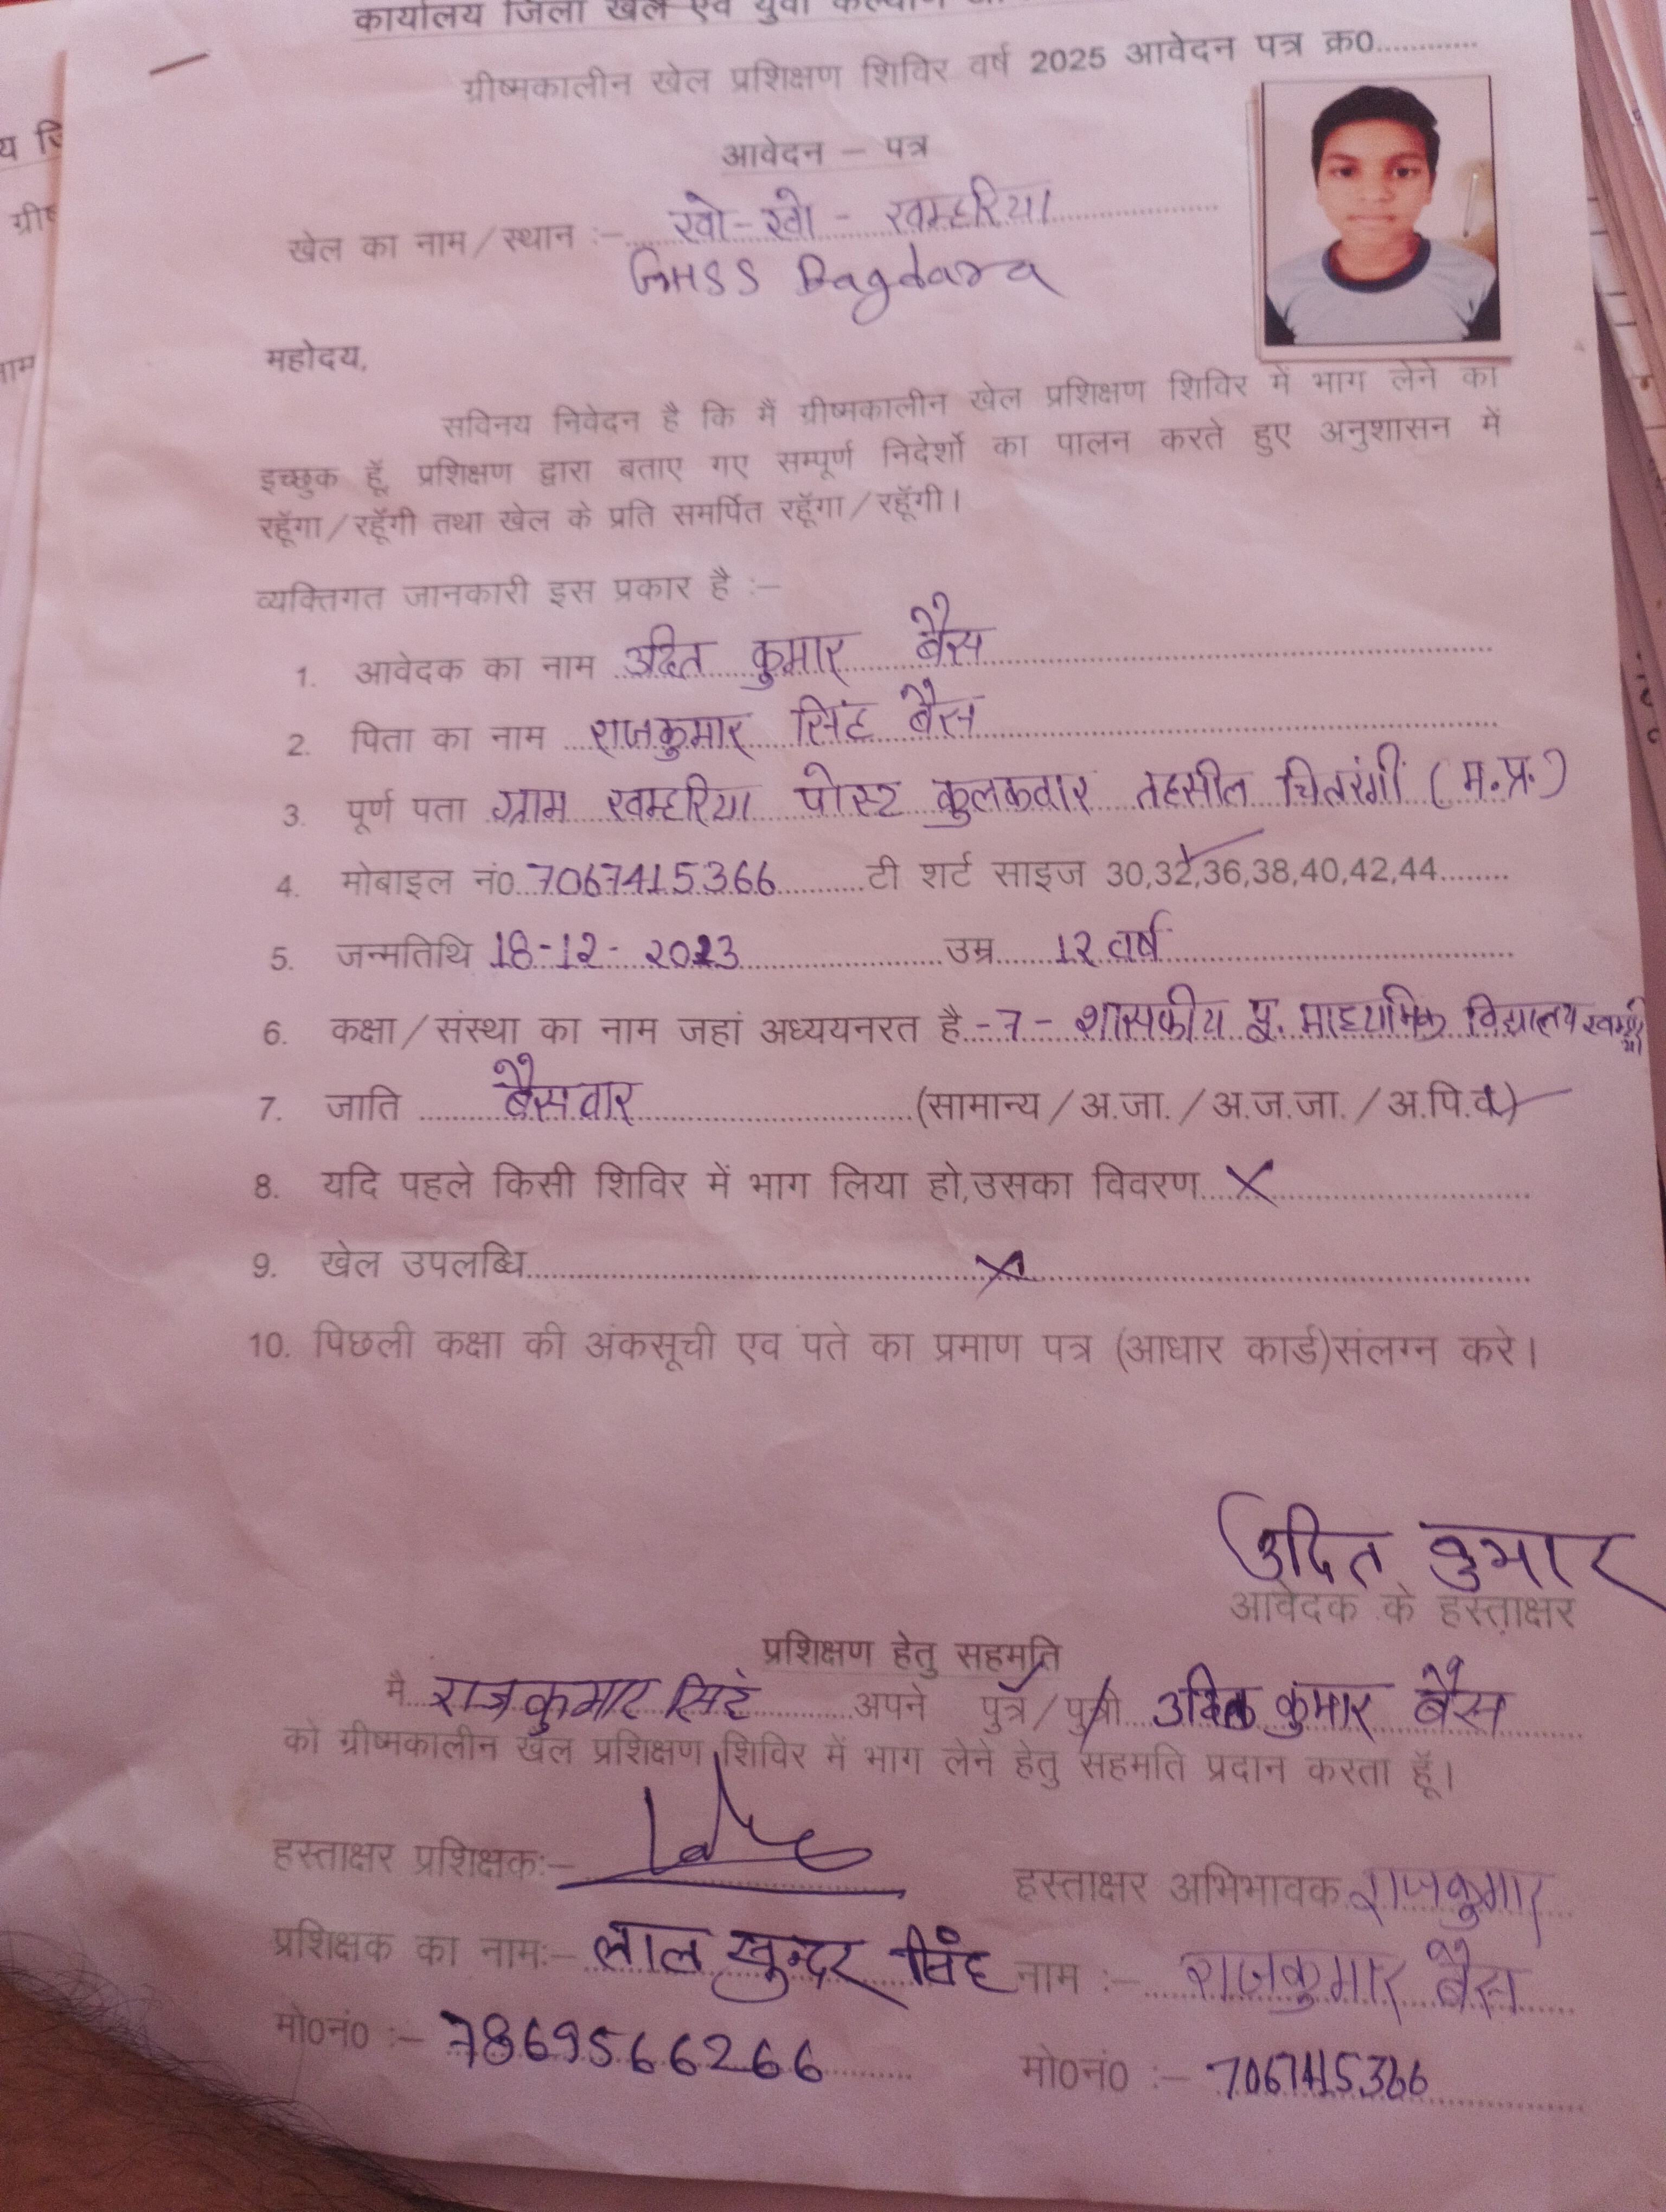 कार्यालय जिला खेल एवं युवा कल्याण
ग्रीष्मकालीन खेल प्रशिक्षण शिविर वर्ष 2025 आवेदन पत्र क्र0............
आवेदन – पत्र
खेल का नाम/स्थान :– खो-खो - खम्हरिया
GHSS Bagdara
महोदय,
सविनय निवेदन है कि मैं ग्रीष्मकालीन खेल प्रशिक्षण शिविर में भाग लेने का
इच्छुक हूँ, प्रशिक्षण द्वारा बताए गए सम्पूर्ण निदेर्शो का पालन करते हुए अनुशासन में
रहूँगा/रहूँगी तथा खेल के प्रति समर्पित रहूँगा/रहूँगी।
व्यक्तिगत जानकारी इस प्रकार है :–
1. आवेदक का नाम उदित कुमार बैस
2. पिता का नाम राजकुमार सिंह बैस
3. पूर्ण पता ग्राम खम्हरिया पोस्ट कुलकवार तहसील चितरंगी (म.प्र.)
4. मोबाइल नं0 7067415366 टी शर्ट साइज 30,32,36,38,40,42,44........
5. जन्मतिथि 18-12-2013 उम्र 12 वर्ष
6. कक्षा/संस्था का नाम जहां अध्ययनरत है -7- शासकीय पू. माध्यमिक विद्यालय
7. जाति बैसवार (सामान्य/अ.जा./अ.ज.जा./अ.पि.व.)
8. यदि पहले किसी शिविर में भाग लिया हो,उसका विवरण X
9. खेल उपलब्धि X
10. पिछली कक्षा की अंकसूची एव पते का प्रमाण पत्र (आधार कार्ड)संलग्न करे।
उदित कुमार
आवेदक के हस्ताक्षर
प्रशिक्षण हेतु सहमति
मै राजकुमार सिंह अपने पुत्र/पुत्री उदित कुमार बैस
को ग्रीष्मकालीन खेल प्रशिक्षण शिविर में भाग लेने हेतु सहमति प्रदान करता हूँ।
हस्ताक्षर प्रशिक्षक:– हस्ताक्षर अभिभावक राजकुमार
प्रशिक्षक का नाम:– लाल सुन्दर सिंह नाम :– राजकुमार बैस
मो0नं0 :– 7869566266 मो0नं0 :– 7067415366